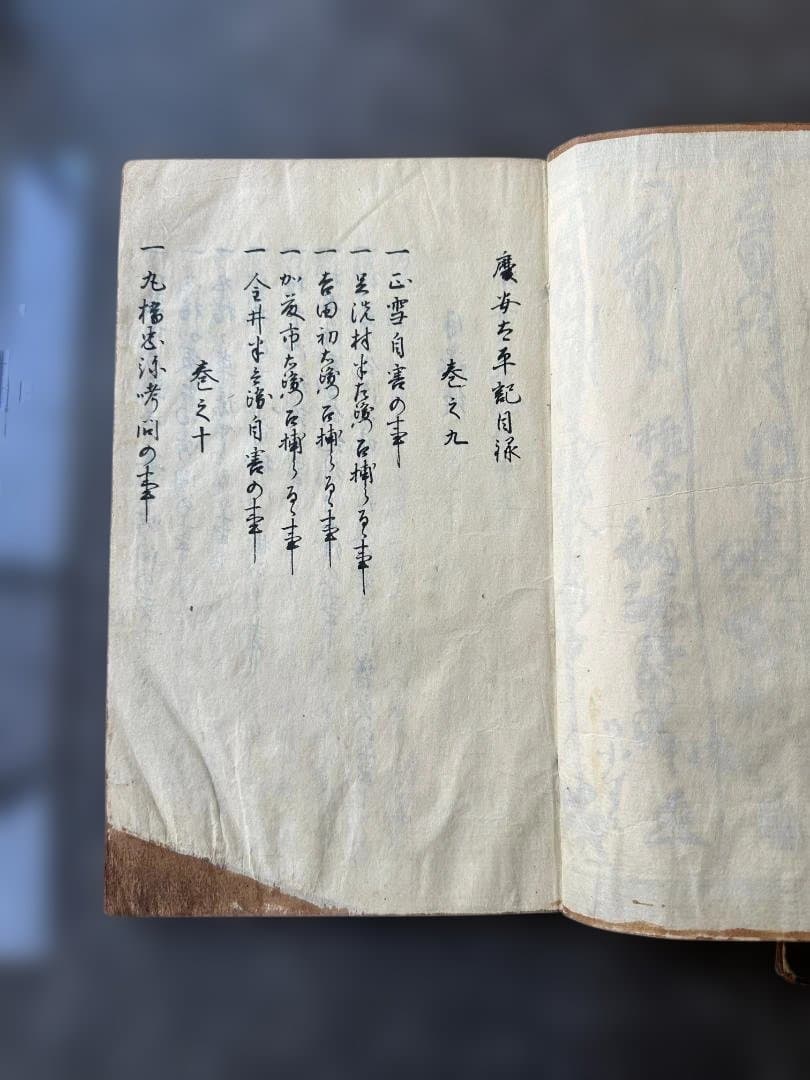 慶安太平記目録
巻之九
一 正雪自害の事
一 足洗村半左衛門召捕らるゝ事
一 吉田初右衛門召捕らるゝ事
一 加藤市右衛門召捕らるゝ事
一 金井半兵衛自害の事
巻之十
一 丸橋忠弥拷問の事